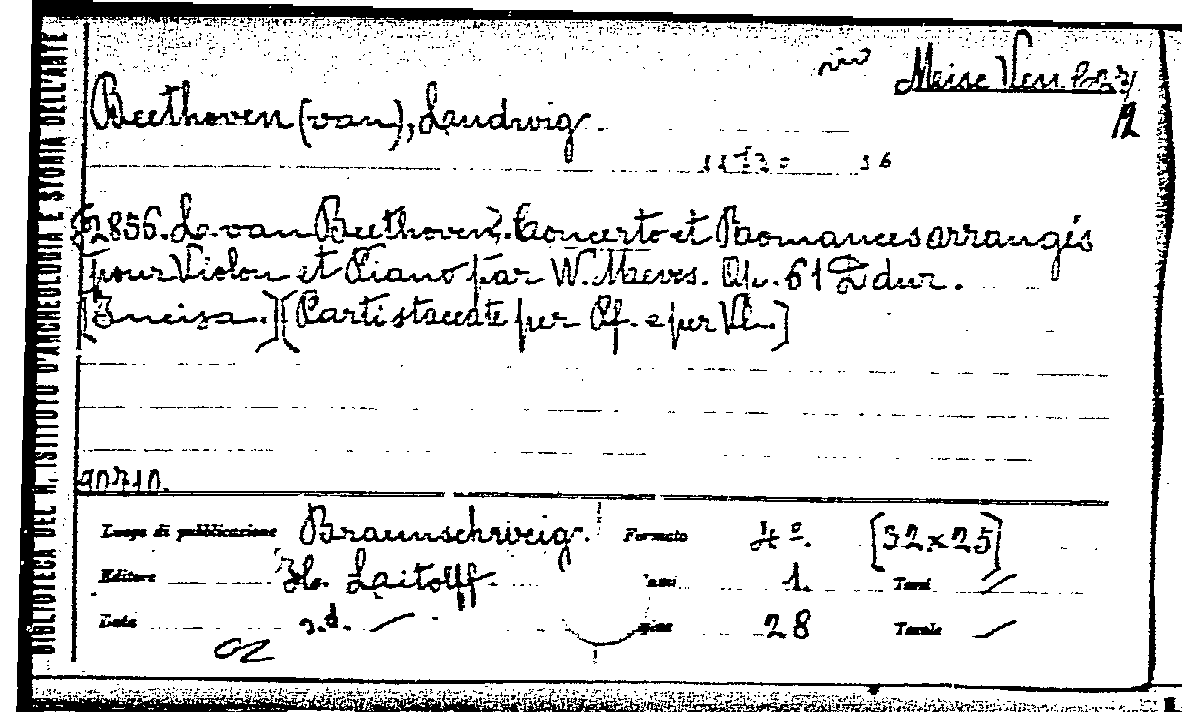 BIBLIOTECA DEL R. ISTITUTO D'ARCHEOLOGIA E STORIA DELL'ARTE
Beethoven (van), Ludwig.
2856. L. van Beethoven. Concerto et Romances arrangés
pour Violon et Piano par W. Meves. Op. 61 D dur.
[Incisa.] [Parti staccate per Pf. e per Vl.]
90710.
Luogo di pubblicazione Braunschweig. Formato 4º. [32x25]
Editore H. Litolff. Tomi 1.
Data s.d. 28 Tavole